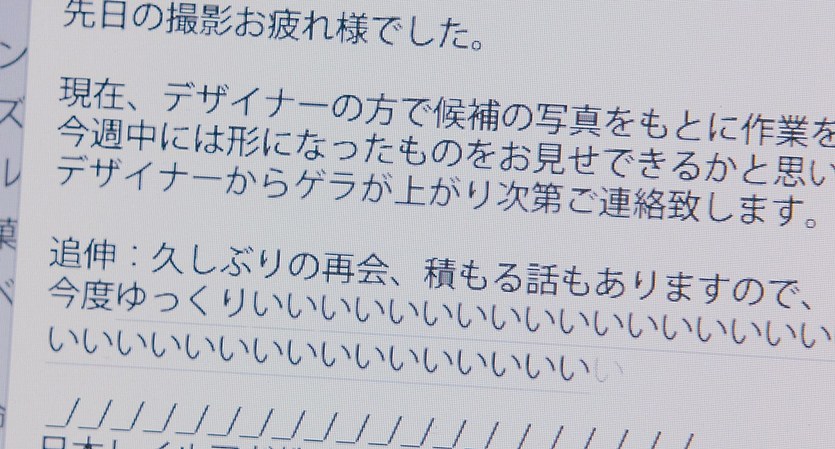 先日の撮影お疲れ様でした。
現在、デザイナーの方で候補の写真をもとに作業を
今週中には形になったものをお見せできるかと思い
デザイナーからゲラが上がり次第ご連絡致します。
追伸：久しぶりの再会、積もる話もありますので、
今度ゆっくりいいいいいいいいいいいいいいいいい
いいいいいいいいいいいいいいいいい
_/_/_/_/_/_/_/_/_/_/_/_/_/_/_/_/_/_/_/